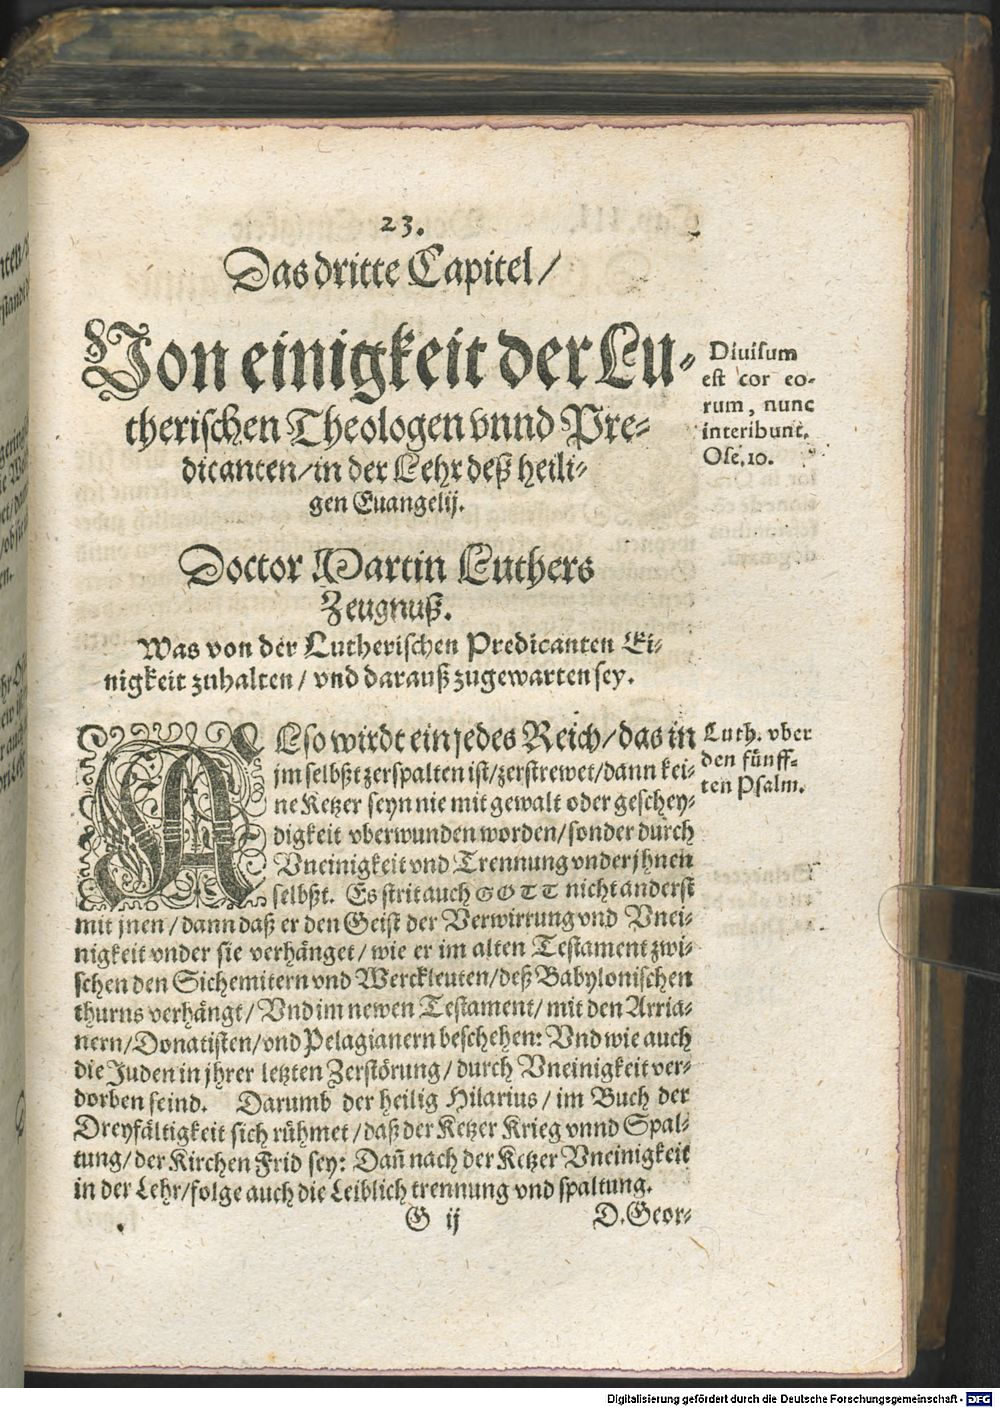 23.
Das dritte Capitel/
Von einigkeit der Lu-
therischen Theologen vnnd Pre-
dicanten/in der Lehr deß heili-
gen Euangelij.
Diuisum
est cor eo-
rum, nunc
interibunt.
Ose, 10.
Doctor Martin Luthers
Zeugnuß.
Was von der Lutherischen Predicanten Ei-
nigkeit zuhalten/ vnd darauß zugewarten sey.
ALso wirdt ein jedes Reich/das in
jm selbßt zerspalten ist/zerstrewet/dann kei-
ne Ketzer seyn nie mit gewalt oder geschey-
digkeit vberwunden worden/sonder durch
Vneinigkeit vnd Trennung vnder jhnen
selbßt. Es strit auch GOTT nicht anderst
mit jnen/dann daß er den Geist der Verwirrung vnd Vnei-
nigkeit vnder sie verhänget/wie er im alten Testament zwi-
schen den Sichemitern vnd Werckleuten/deß Babylonischen
thurns verhängt/ Vnd im newen Testament/ mit den Arria-
nern/Donatisten/vnd Pelagianern beschehen: Vnd wie auch
die Juden in jhrer letzten Zerstörung/durch Vneinigkeit ver-
dorben seind. Darumb der heilig Hilarius/im Buch der
Dreyfältigkeit sich rühmet/daß der Ketzer Krieg vnnd Spal-
tung/der Kirchen Frid sey: Dañ nach der Ketzer Vneinigkeit
in der Lehr/folge auch die Leiblich trennung vnd spaltung.
Luth. vber
den fünff-
ten Psalm.
G ij
D. Geor-
Digitalisierung gefördert durch die Deutsche Forschungsgemeinschaft - DFG